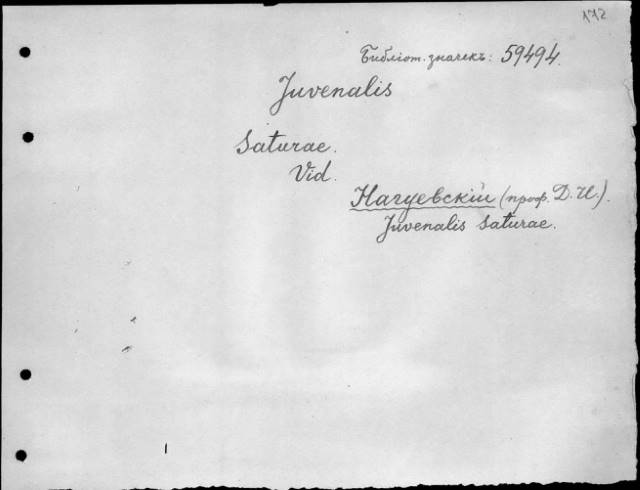 172
Библіот. значекъ: 59494.
Juvenalis
Saturae.
Vid.
Нагуевскій (проф. Д. И.).
Juvenalis Saturae.